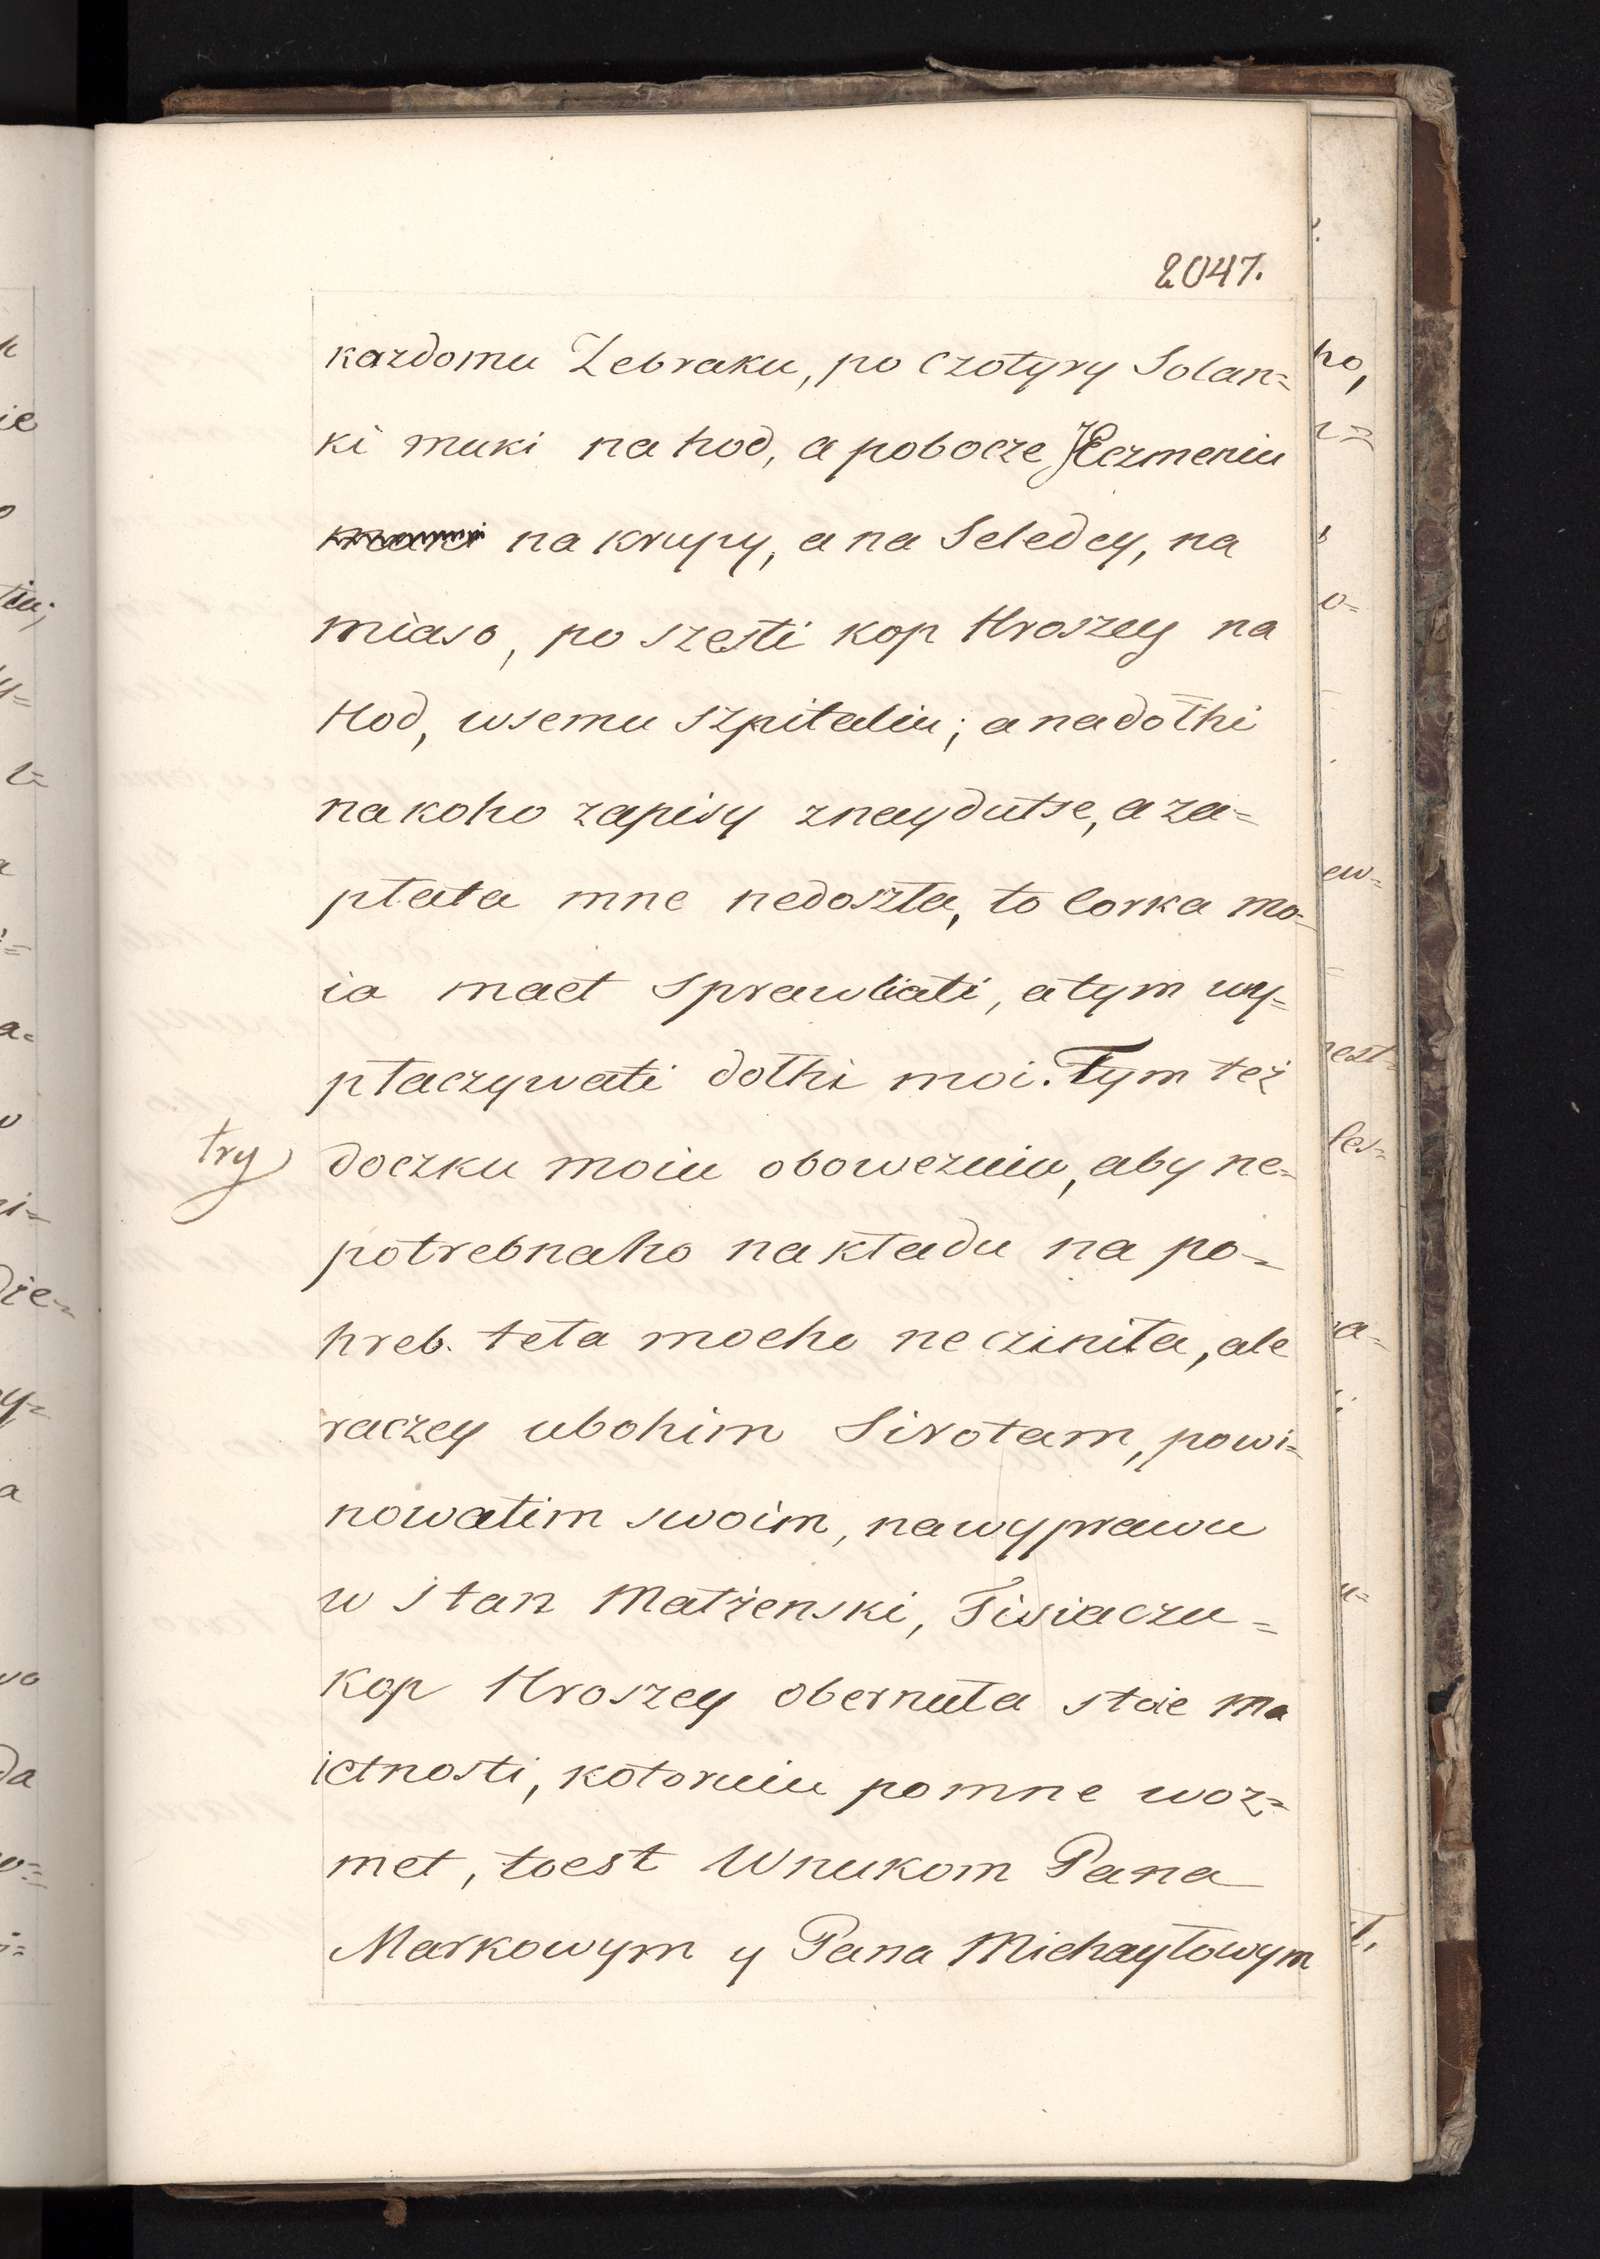 2047.
kazdomu Zebraku, po czotyry Solan=
ki muki na hod, a pobocze Jeczmeniu
na krupy, a na Seledcy, na
miaso, po szesti kop Hroszey na
Hod, wsemu szpitaliu; a na dołhi
na koho zapisy znaydutse, a za=
płata mne nedoszła, to Corka mo=
ia maet sprawliati, a tym wy=
płaczywati dołhi moi. Tym też
try
doczku moiu obowezuiu, aby ne=
potrebnaho nakładu na po=
hreb. teła moeho ne cziniła, ale
raczey ubohim Sirotam, powi=
nowatim swoim, na wyprawu
w stan Małżenski, Tisiaczu=
kop Hroszey obernuła stoie ma
ietnosti, kotoruiu po mne woz=
met, to est Wnukom Pana
Markowym y Pana Michayłowym